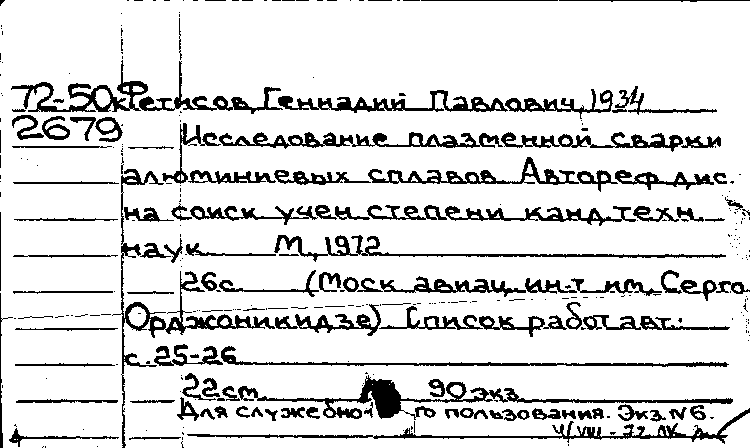 72-50к Фетисов, Геннадий Павлович, 1934
2679 Исследование плазменной сварки
алюминиевых сплавов. Автореф. дис.
на соиск. учен. степени канд. техн.
наук. М., 1972.
26с. (Моск. авиац. ин-т им. Серго
Орджоникидзе). Список работ авт.:
с. 25-26
22см. 90 экз.
Для служебного пользования. Экз. № 6.
4/VIII-72